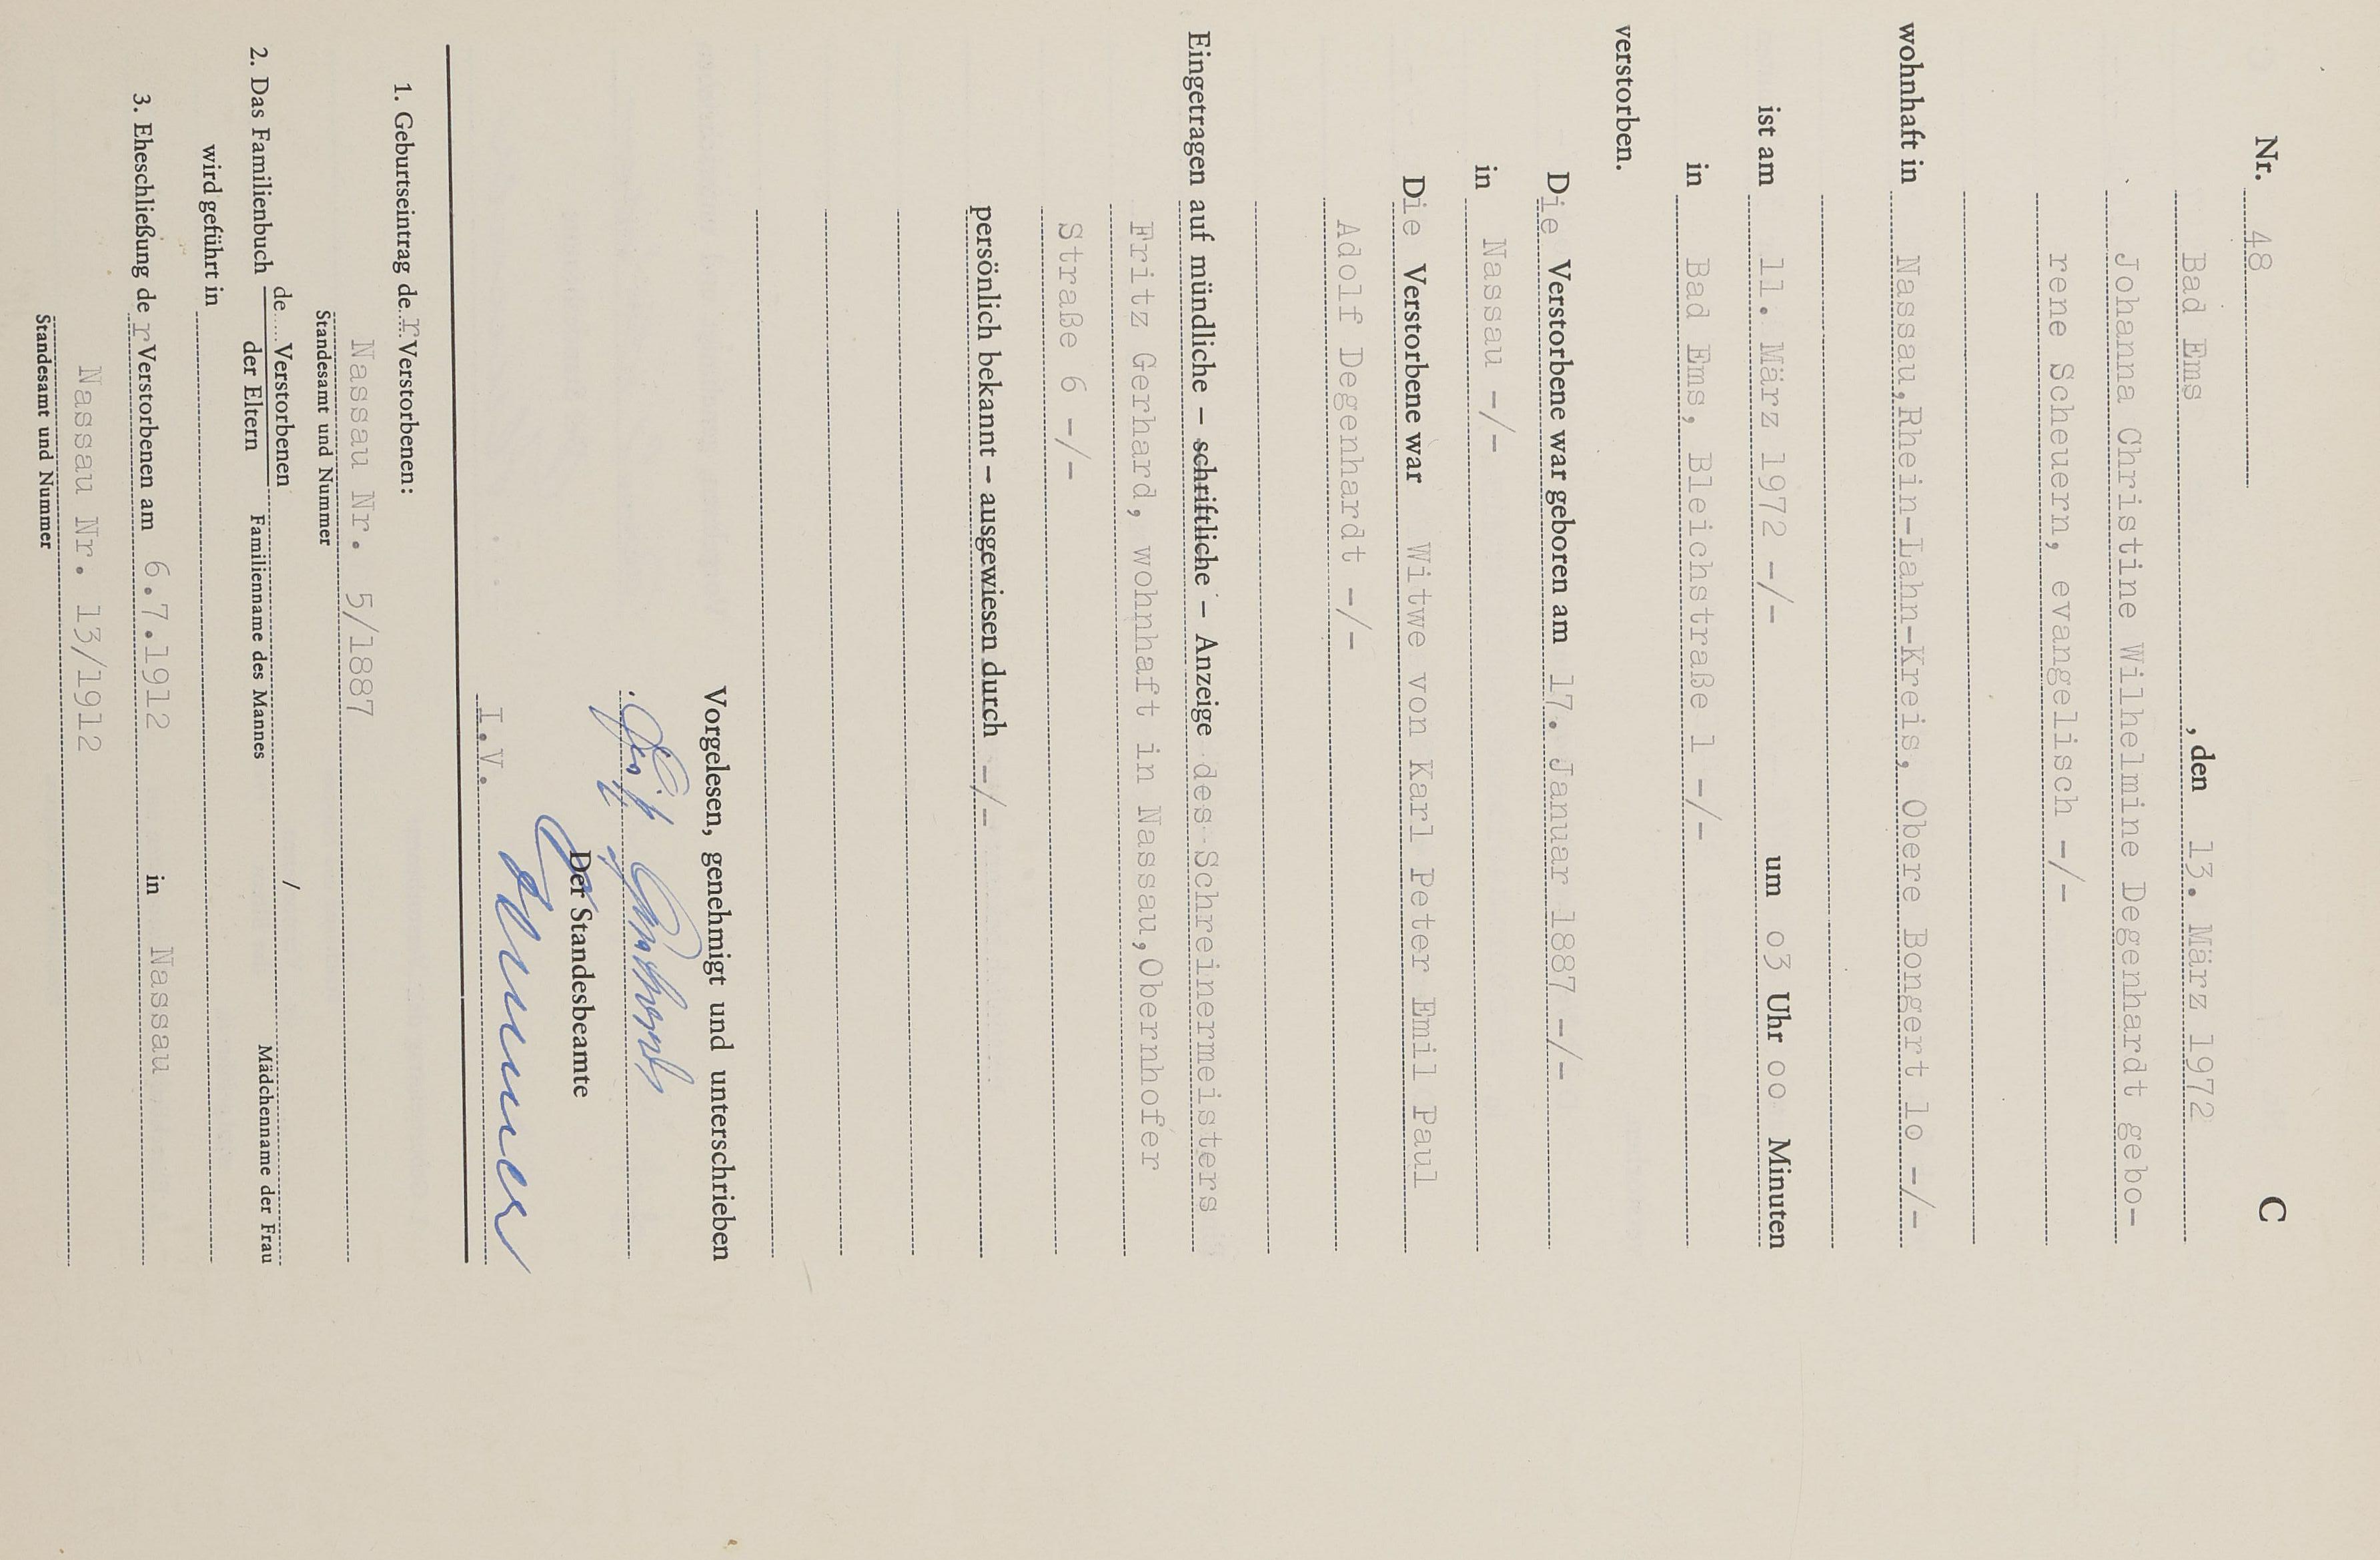 Nr. 48 C
Bad Ems , den 13. März 1972
Johanna Christine Wilhelmine Degenhardt gebo-
rene Scheuern, evangelisch -/-
wohnhaft in Nassau,Rhein-Lahn-Kreis, Obere Bongert lo -/-
ist am 11. März 1972 -/- um o3 Uhr oo Minuten
in Bad Ems, Bleichstraße 1 -/-
verstorben.
Die Verstorbene war geboren am 17. Januar 1887 -/-
in Nassau -/-
Die Verstorbene war Witwe von Karl Peter Emil Paul
Adolf Degenhardt -/-
Eingetragen auf mündliche – schriftliche – Anzeige des Schreinermeisters
Fritz Gerhard, wohnhaft in Nassau,Obernhofer
Straße 6 -/-
persönlich bekannt – ausgewiesen durch -/-
Vorgelesen, genehmigt und unterschrieben
Der Standesbeamte
I.V.
1. Geburtseintrag der Verstorbenen:
Nassau Nr. 5/1887
Standesamt und Nummer
2. Das Familienbuch de.... Verstorbenen /
der Eltern Familienname des Mannes Mädchenname der Frau
wird geführt in
3. Eheschließung der Verstorbenen am 6.7.1912 in Nassau
Nassau Nr. 13/1912
Standesamt und Nummer